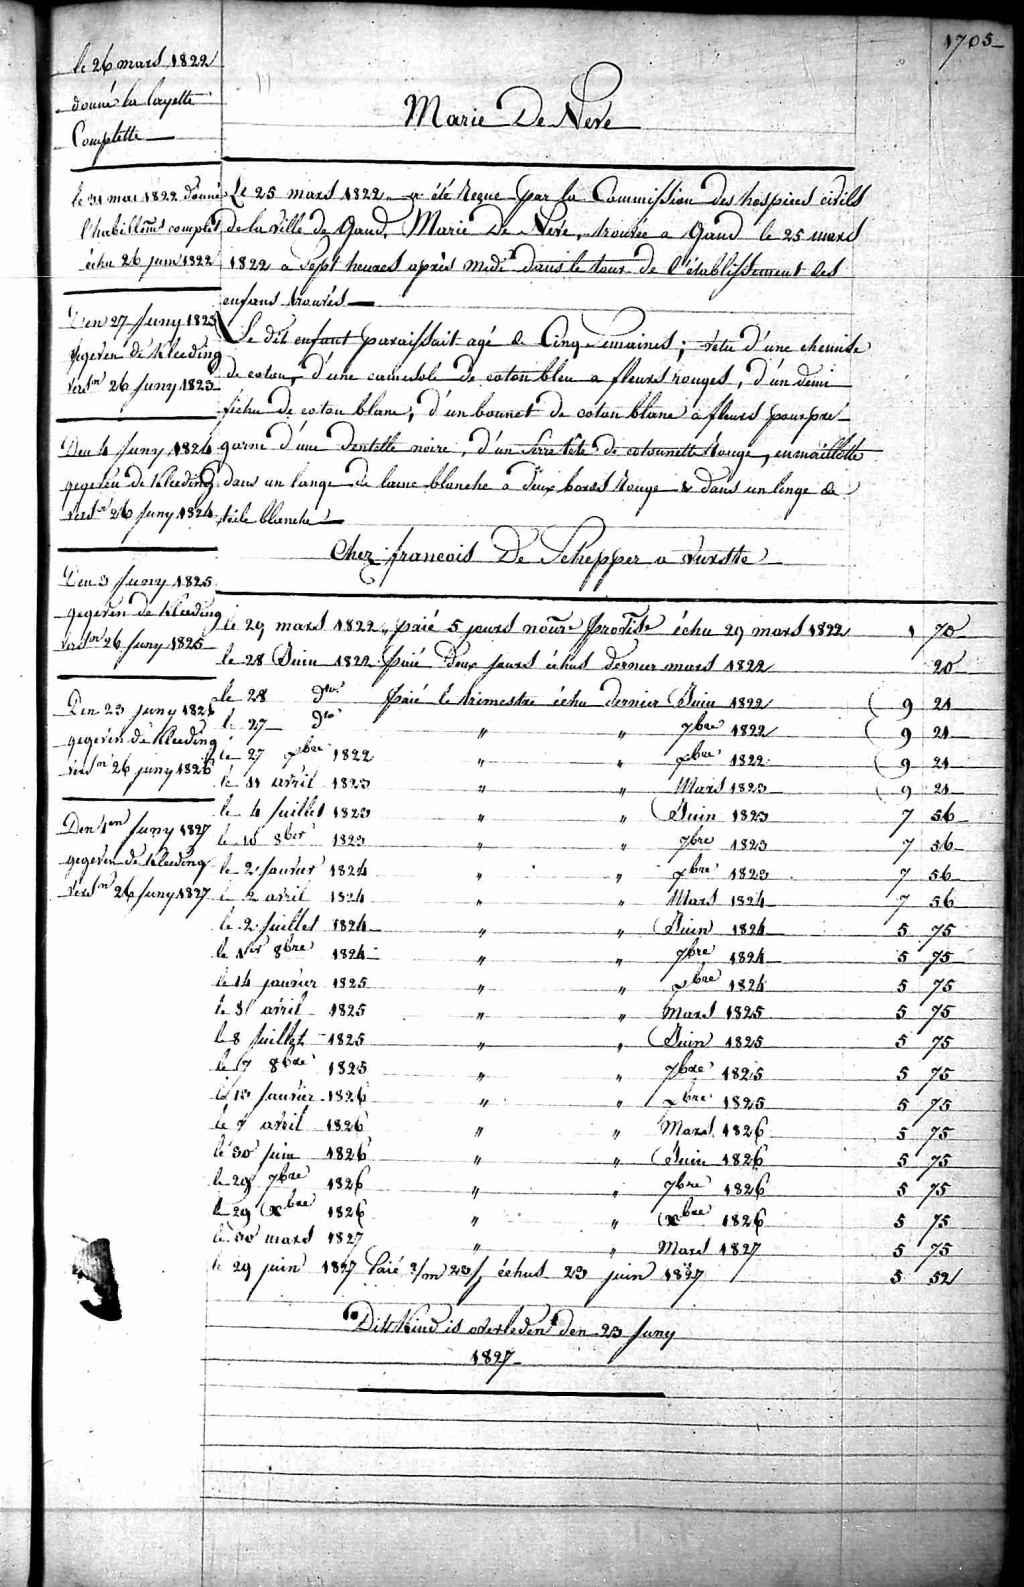 1705
le 26 mars 1822
donné la layette
Complette
Marie De Neve
le 31 mai 1822 donné
l'habillemt complet
échu 26 juin 1822
Le 25 mars 1822 a été Reçue par la Commission des hospices civils
de la ville de Gand, Marie De Neve, trouvée a Gand le 25 mars
1822 a Sept heures après Midi dans le tour de l'établissement des
enfans trouvés
Den 27 Juny 1823
gegeven de Kleeding
verstn 26 Juny 1823
Le dit enfant paraissait agé de Cinq Semaines; vêtu d'une chemise
de coton, d'une camesole de coton bleu a fleurs rouges, d'un demi
fichu de coton blanc, d'un bonnet de coton blanc a fleurs pourpre
garne d'une Dentelle noire, d'un Serre tête de cotonnette Rouge, enmaillotté
dans un lange de laine blanche a deux bords Rouge & dans un linge de
toile blanche
Den 4 Juny 1824
gegeven de Kleeding
verstn 26 Juny 1824
Chez francois De Schepper a Vurste
Den 3 Juny 1825
gegeven de Kleeding
verstn 26 Juny 1825
Den 23 juny 1826
gegeven de Kleeding
verstn 26 juny 1826
Den 1en Juny 1827
gegeven de Kleeding
verstn 26 Juny 1827
le 29 mars 1822 " païé 5 jours nourre Provise échu 29 mars 1822 1 75
le 28 Juin 1822 Païé Deux jours échus dernier mars 1822 20
le 28 Dto Païé le trimestre échu dernier Juin 1822 9 21
le 27 Do " " 7bre 1822 9 21
le 27 Xbre 1822 " " Xbre 1822 9 21
le 11 avril 1823 " " Mars 1823 9 21
le 4 Juillet 1823 " " Juin 1823 7 56
le 10 8bre 1823 " " 7bre 1823 7 56
le 2 Janvier 1824 " " Xbre 1823 7 56
le 2 avril 1824 " " Mars 1824 7 56
le 2 Juillet 1824 " " Juin 1824 5 75
le 1er 8bre 1824 " " 7bre 1824 5 75
le 14 janvier 1825 " " Xbre 1824 5 75
le 8 avril 1825 " " Mars 1825 5 75
le 8 Juillet 1825 " " Juin 1825 5 75
le 7 8bre 1825 " " 7bre 1825 5 75
le 13 Janvier 1826 " " Xbre 1825 5 75
le 7 avril 1826 " " Mars 1826 5 75
le 30 juin 1826 " " Juin 1826 5 75
le 29 7bre 1826 " " 7bre 1826 5 75
le 29 Xbre 1826 " " Xbre 1826 5 75
le 30 mars 1827 " " Mars 1827 5 75
le 29 juin 1827 Païé 2/m 23/j échus 23 juin 1827 5 52
Dit Kind is overleden den 23 Juny
1827